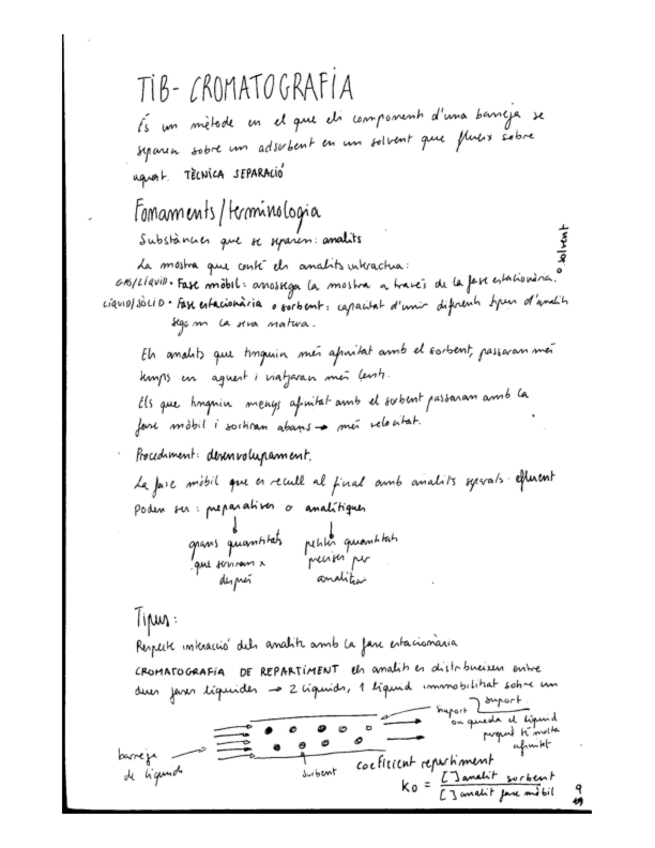 TIB- CROMATOGRAFÍA
És un mètode en el que els components d'una barreja se
separen sobre un adsorbent en un solvent que flueix sobre
aquest. TÈCNICA SEPARACIÓ
Fonaments/terminologia
Substàncies que se separen: analits
La mostra que conté els analits interactua:
GAS/LÍQUID • Fase mòbil: arrossega la mostra a través de la fase estacionària.
o solvent
LÍQUID/SÒLID • Fase estacionària o sorbent: capacitat d'unir diferents tipus d'analits
segons la seva natura.
Els analits que tinguin més afinitat amb el sorbent, passaran més
temps en aquest i viatjaran més lents.
Els que tinguin menys afinitat amb el sorbent passaran amb la
fase mòbil i sortiran abans → més velocitat.
Procediment: desenvolupament.
La fase mòbil que es recull al final amb analits separats: efluent
Poden ser: preparatives o analítiques
grans quantitats petites quantitats
que serviran x precises per
després analitzar
Tipus:
Respecte interacció dels analits amb la fase estacionària
CROMATOGRAFIA DE REPARTIMENT els analits es distribueixen entre
dues fases líquides → 2 líquids, 1 líquid immobilitzat sobre un
suport
suport
on queda el líquid
perquè té molta
afinitat
barreja
de líquids
sorbent
coeficient repartiment
K0 = [ ] analit sorbent / [ ] analit fase mòbil